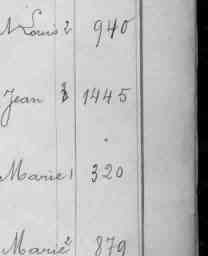 Louis 2 940
Jean 1445
Marie 1 320
Marie 2 879